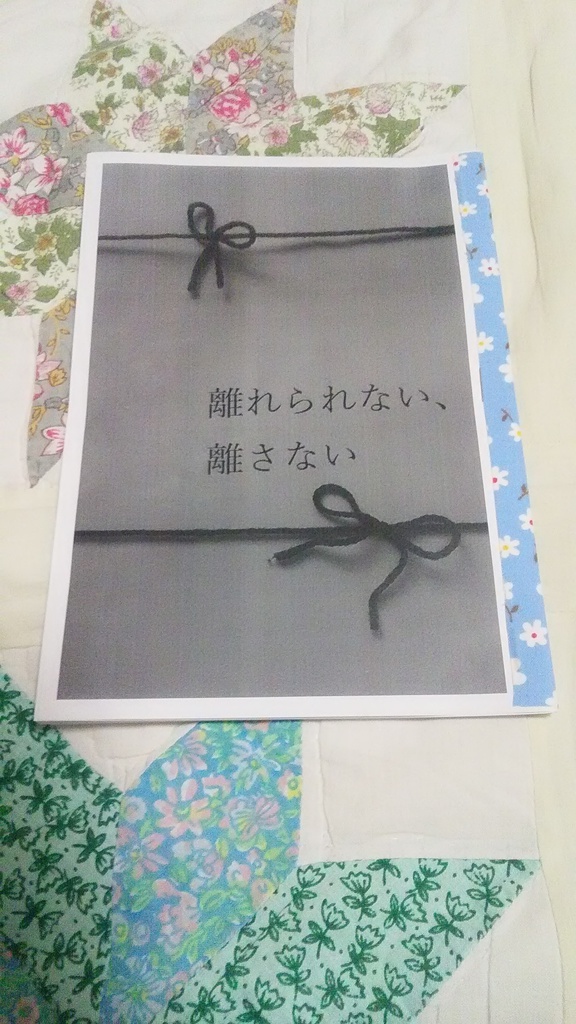 離れられない、
離さない